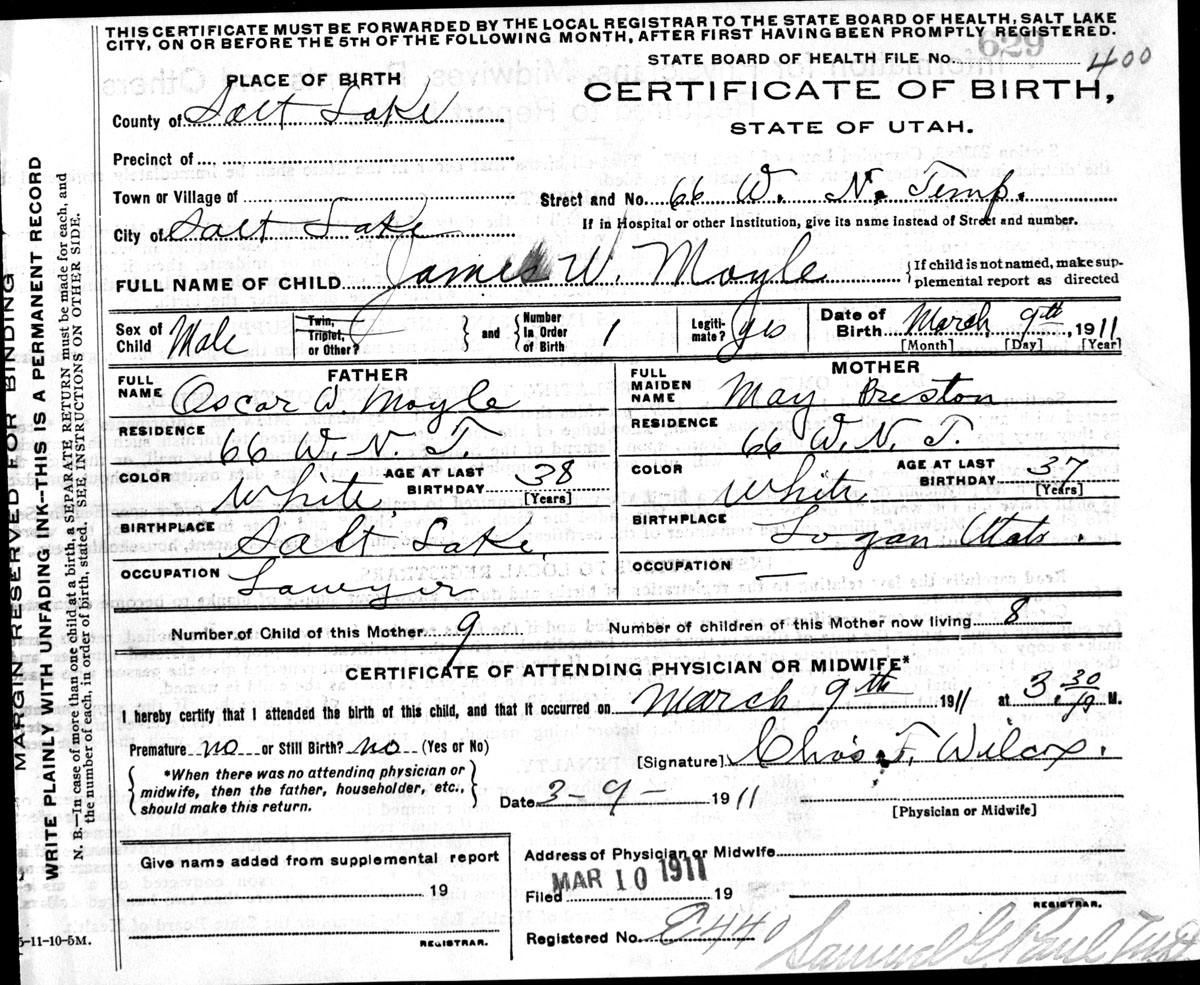 THIS CERTIFICATE MUST BE FORWARDED BY THE LOCAL REGISTRAR TO THE STATE BOARD OF HEALTH, SALT LAKE
CITY, ON OR BEFORE THE 5TH OF THE FOLLOWING MONTH, AFTER FIRST HAVING BEEN PROMPTLY REGISTERED.
629
STATE BOARD OF HEALTH FILE No. 400
PLACE OF BIRTH
CERTIFICATE OF BIRTH,
County of Salt Lake
STATE OF UTAH.
Precinct of
Town or Village of
Street and No. 66 W. N. Temp.
City of Salt Lake
If in Hospital or other Institution, give its name instead of Street and number.
FULL NAME OF CHILD James W. Moyle
If child is not named, make sup-
plemental report as directed
Sex of Child Male
Twin, Triplet, or Other?
and
Number in Order of Birth 1
Legiti-mate? yes
Date of Birth March 9th, 1911
[Month] [Day] [Year]
FATHER
FULL NAME Oscar W. Moyle
RESIDENCE 66 W. N. T.
COLOR White
AGE AT LAST BIRTHDAY 38
[Years]
BIRTHPLACE Salt Lake.
OCCUPATION Lawyer
MOTHER
FULL MAIDEN NAME May Preston
RESIDENCE 66 W. N. T.
COLOR White
AGE AT LAST BIRTHDAY 37
[Years]
BIRTHPLACE Logan Utah.
OCCUPATION —
Number of Child of this Mother 9
Number of children of this Mother now living 8
CERTIFICATE OF ATTENDING PHYSICIAN OR MIDWIFE*
I hereby certify that I attended the birth of this child, and that it occurred on March 9th 1911 at 3.30 M.
Premature no or Still Birth? no (Yes or No)
[Signature] Chas. F. Wilcox.
*When there was no attending physician or
midwife, then the father, householder, etc.,
should make this return.
Date 3-9- 1911
[Physician or Midwife]
Give name added from supplemental report
19
REGISTRAR.
Address of Physician or Midwife
Filed MAR 10 1911 19
REGISTRAR.
Registered No. E440
Samuel G. Paul
5-11-10-5M.
MARGIN RESERVED FOR BINDING
WRITE PLAINLY WITH UNFADING INK--THIS IS A PERMANENT RECORD
N. B.—In case of more than one child at a birth, a SEPARATE RETURN must be made for each, and
the number of each, in order of birth, stated. SEE INSTRUCTIONS ON OTHER SIDE.